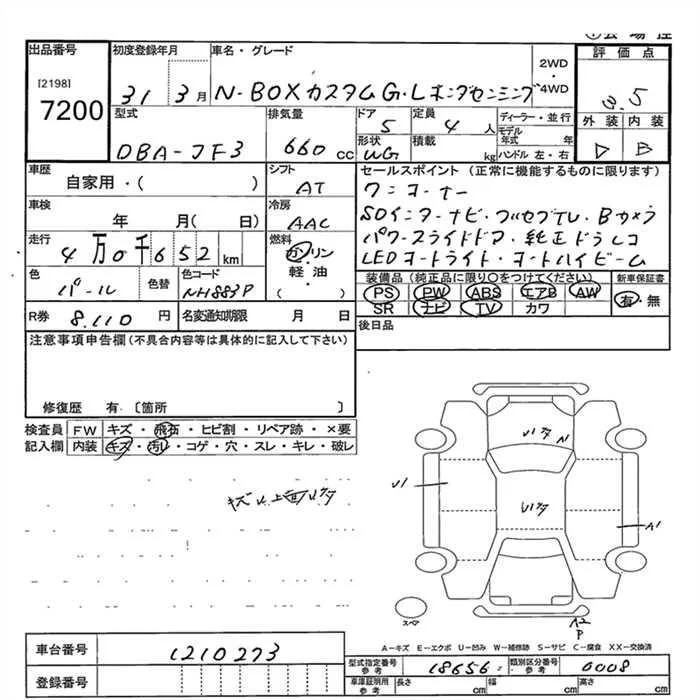 出品番号 初度登録年月 車名・グレード 2WD・4WD 評価点
[2198] 7200 31 3月 N-BOXカスタムG・Lホンダセンシング 3.5
型式 排気量 ドア 定員 ディーラー・並行 外装 内装
DBA-JF3 660 CC 5 4 人 モデル年式 年
形状 積載 kg ハンドル 左・右
WG B
車歴 シフト セールスポイント (正常に機能するものに限ります)
自家用・( ) AT ワンオーナー
車検 冷房 SDインターナビ・フルセグTV・Bカメラ
年 月( 日) AAC パワースライドドア・純正ドラレコ
走行 燃料 LEDオートライト・オートハイビーム
4万0千652 km ガソリン・軽油・( )
色 色替 色コード 装備品 (純正品に限り〇をつけてください) 新車保証書
パール NH883P PS PW ABS エアB AW 有・無
SR ナビ TV カワ
R券 8.110 円 名変通知期限 月 日 後日品
注意事項申告欄 (不具合内容等は具体的に記入して下さい)
修復歴 有 〔箇所 〕
検査員 FW キズ・飛石・ヒビ割・リペア跡・×要
記入欄 内装 キズ・汚レ・コゲ・穴・スレ・キレ・破レ
N
U1
A1
スペア A2
P
A-キズ E-エクボ U-凹み W-補修跡 S-サビ C-腐食 XX-交換済
車台番号 1210273
型式指定番号 参考 18656 類別区分番号 参考 0008
登録番号
車庫証明用 参考 長さ cm 幅 cm 高さ cm